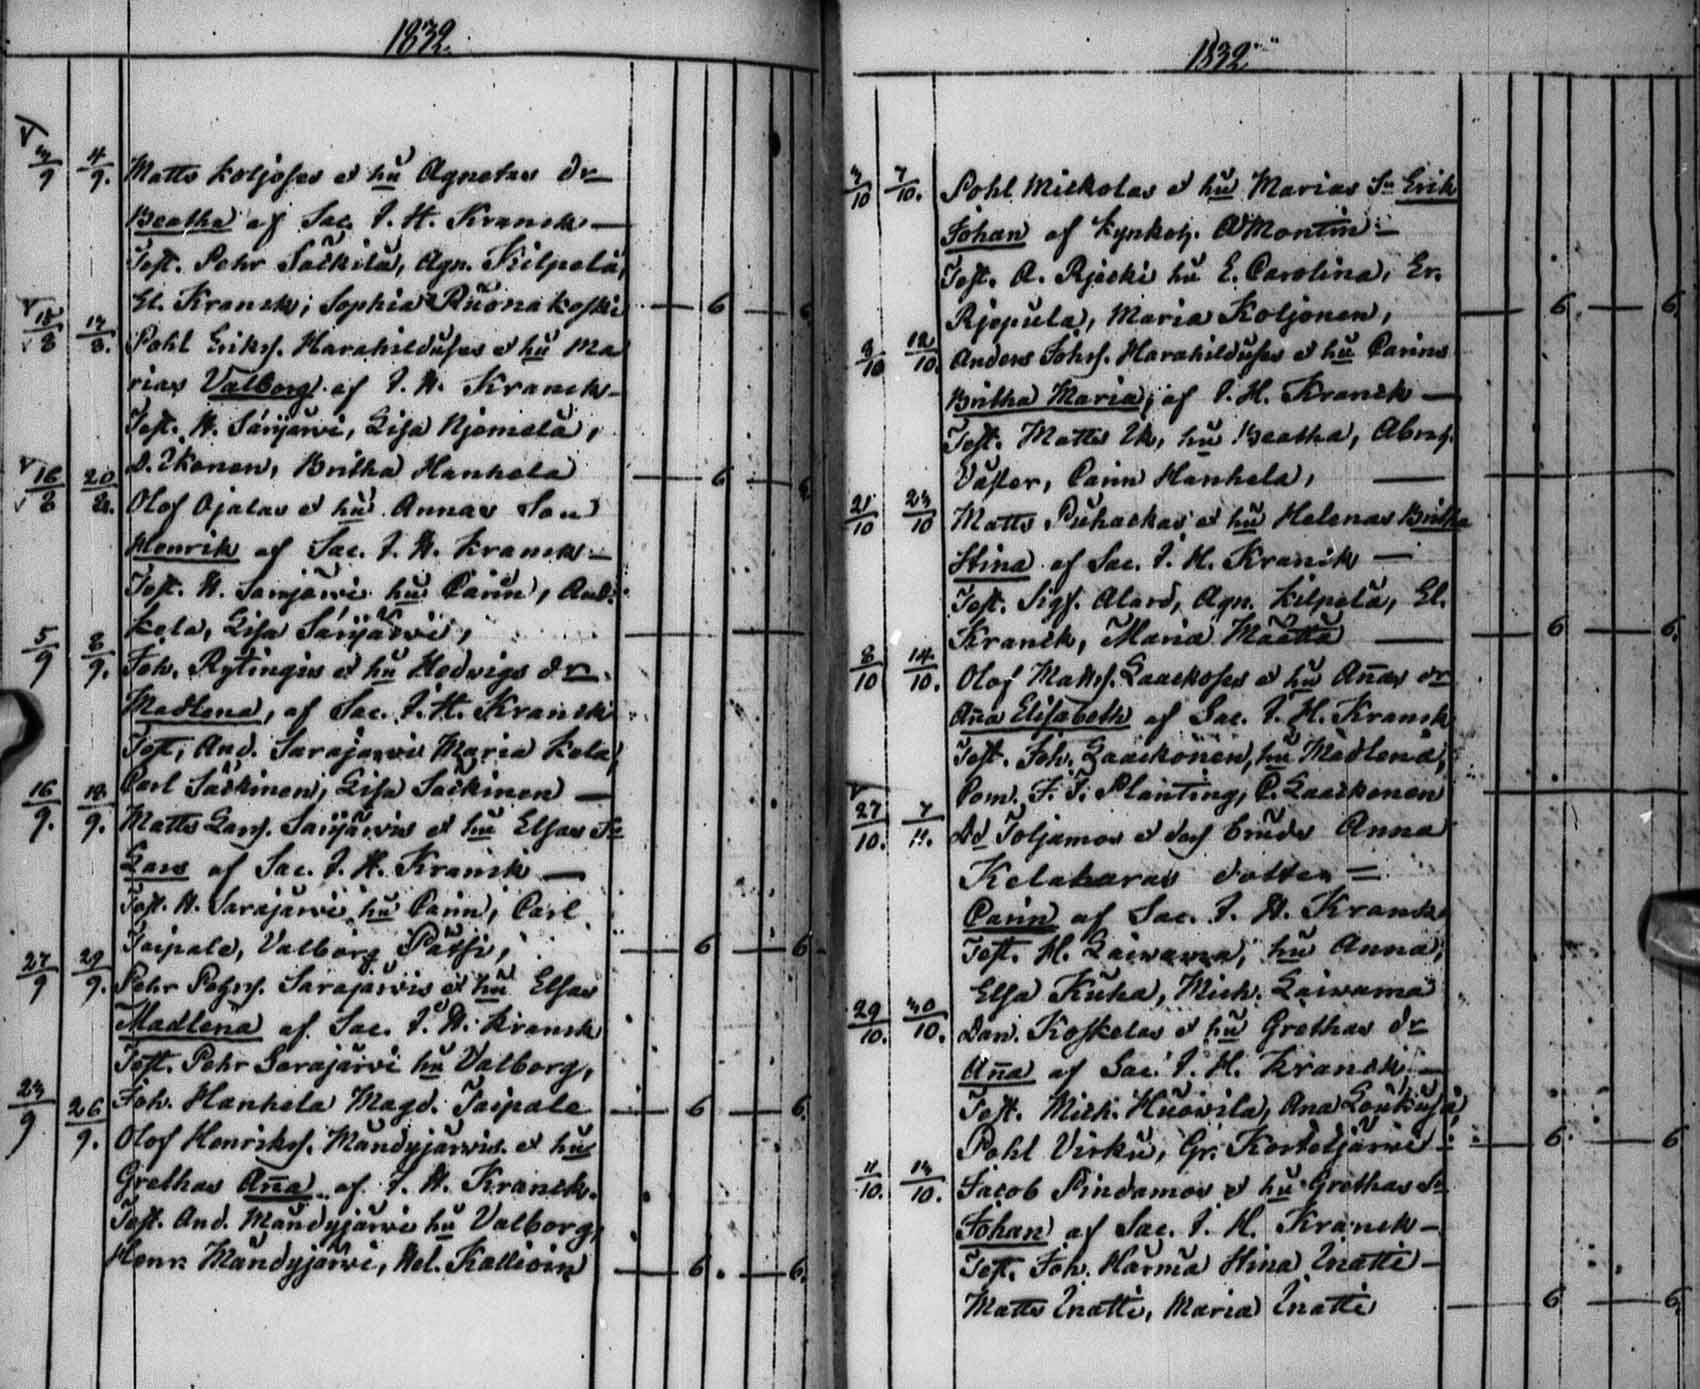 1832.
3/9 4/9. Matts Koljoses et hu Agnetas dr
Beatha af Sac. J. H. Kranck —
Test. Pehr Säikilä, Agn. Kilpelä,
El. Kranck, Sophia Ruonakoski — 6 — 6
18/8 19/8. Pohl Erikss. Harahilduses et hu Ma
rias Valborg af J. H. Kranck —
Test. H. Särijärvi, Lisa Njemelä,
D. Ikonen, Britha Hanhela — 6 — 6
16/8 20/8. Olof Ajalas et hu Annas Son
Henrik af Sac. J. H. Kranck —
Test. H. Sarijärvi hu Carin, And.
Kela, Lisa Särijärvi, —
5/9 8/9. Joh. Rytingis et hu Hedvigs dr
Madlena, af Sac. J. H. Kranck
Test. And. Sarajärvi Maria Kela,
Carl Säikinen, Lisa Säikinen —
16/9. 18/9. Matts Larss. Särijärvis et hu Elsas Sn
Lars af Sac. J. H. Kranck —
Test. H. Sarajärvi hu Carin, Carl
Taipale, Valborg Pätsi, — 6 — 6
27/9 29/9. Pehr Pehrs. Sarajärvis et hu Elsas
Madlena af Sac. J. H. Kranck
Test. Pehr Sarajärvi hu Valborg,
Joh. Hanhela Magd. Taipale — 6 — 6
23/9 26/9. Olof Henrikss. Mändyjärvis et hu
Grethas Aña af J. H. Kranck.
Test. And. Mändyjärvi hu Valborg,
Henr. Mändyjärvi, Hel. Kallioin — 6. — 6.
1832
3/10 7/10. Pohl Mickolas et hu Marias Sn Erik
Johan af Kynkoh. A Montin —
Test. A. Rjecki hu E. Carolina, Er.
Rjepula, Maria Koljonen, — 6. — 6
8/10 12/10. Anders Johss. Harahilduses et hu Carins
Britha Maria, af J. H. Kranck —
Test. Matts Ik, hu Beatha, Abrah.
Väster, Carin Hanhela, —
21/10 23/10 Matts Puhackas et hu Helenas Britha
Stina af Sac. J. H. Kranck —
Test. Sigf. Alard, Agn. Kilpelä, El.
Kranck, Maria Määttä — 6 — 6.
8/10 14/10. Olof Matss. Laackoses et hu Añas dr
Aña Elisabeth af Sac. J. H. Kranck
Test. Joh. Laackonen, hu Madlena,
Com. F. J. Planting, C. Laackonen —
27/10. 7/11. Dd Toljamos et dess bruds Anna
Kelaharas dotter —
Carin af Sac. J. H. Kranck
Test. H. Laiwama, hu Anna,
Elsa Kuha, Mich. Laiwama
29/10. 30/10. Dan. Koskelas et hu Grethas dr
Aña af Sac. J. H. Kranck —
Test. Mich. Huovila, Ana Loukusa,
Pohl Virku, Gr. Korteljärvi — 6. — 6
11/10. 13/10. Jacob Pindamos et hu Grethas Sn
Johan af Sac. J. H. Kranck —
Test. Joh. Härmä Stina Inatti —
Matts Inatti, Maria Inatti — 6 — 6.